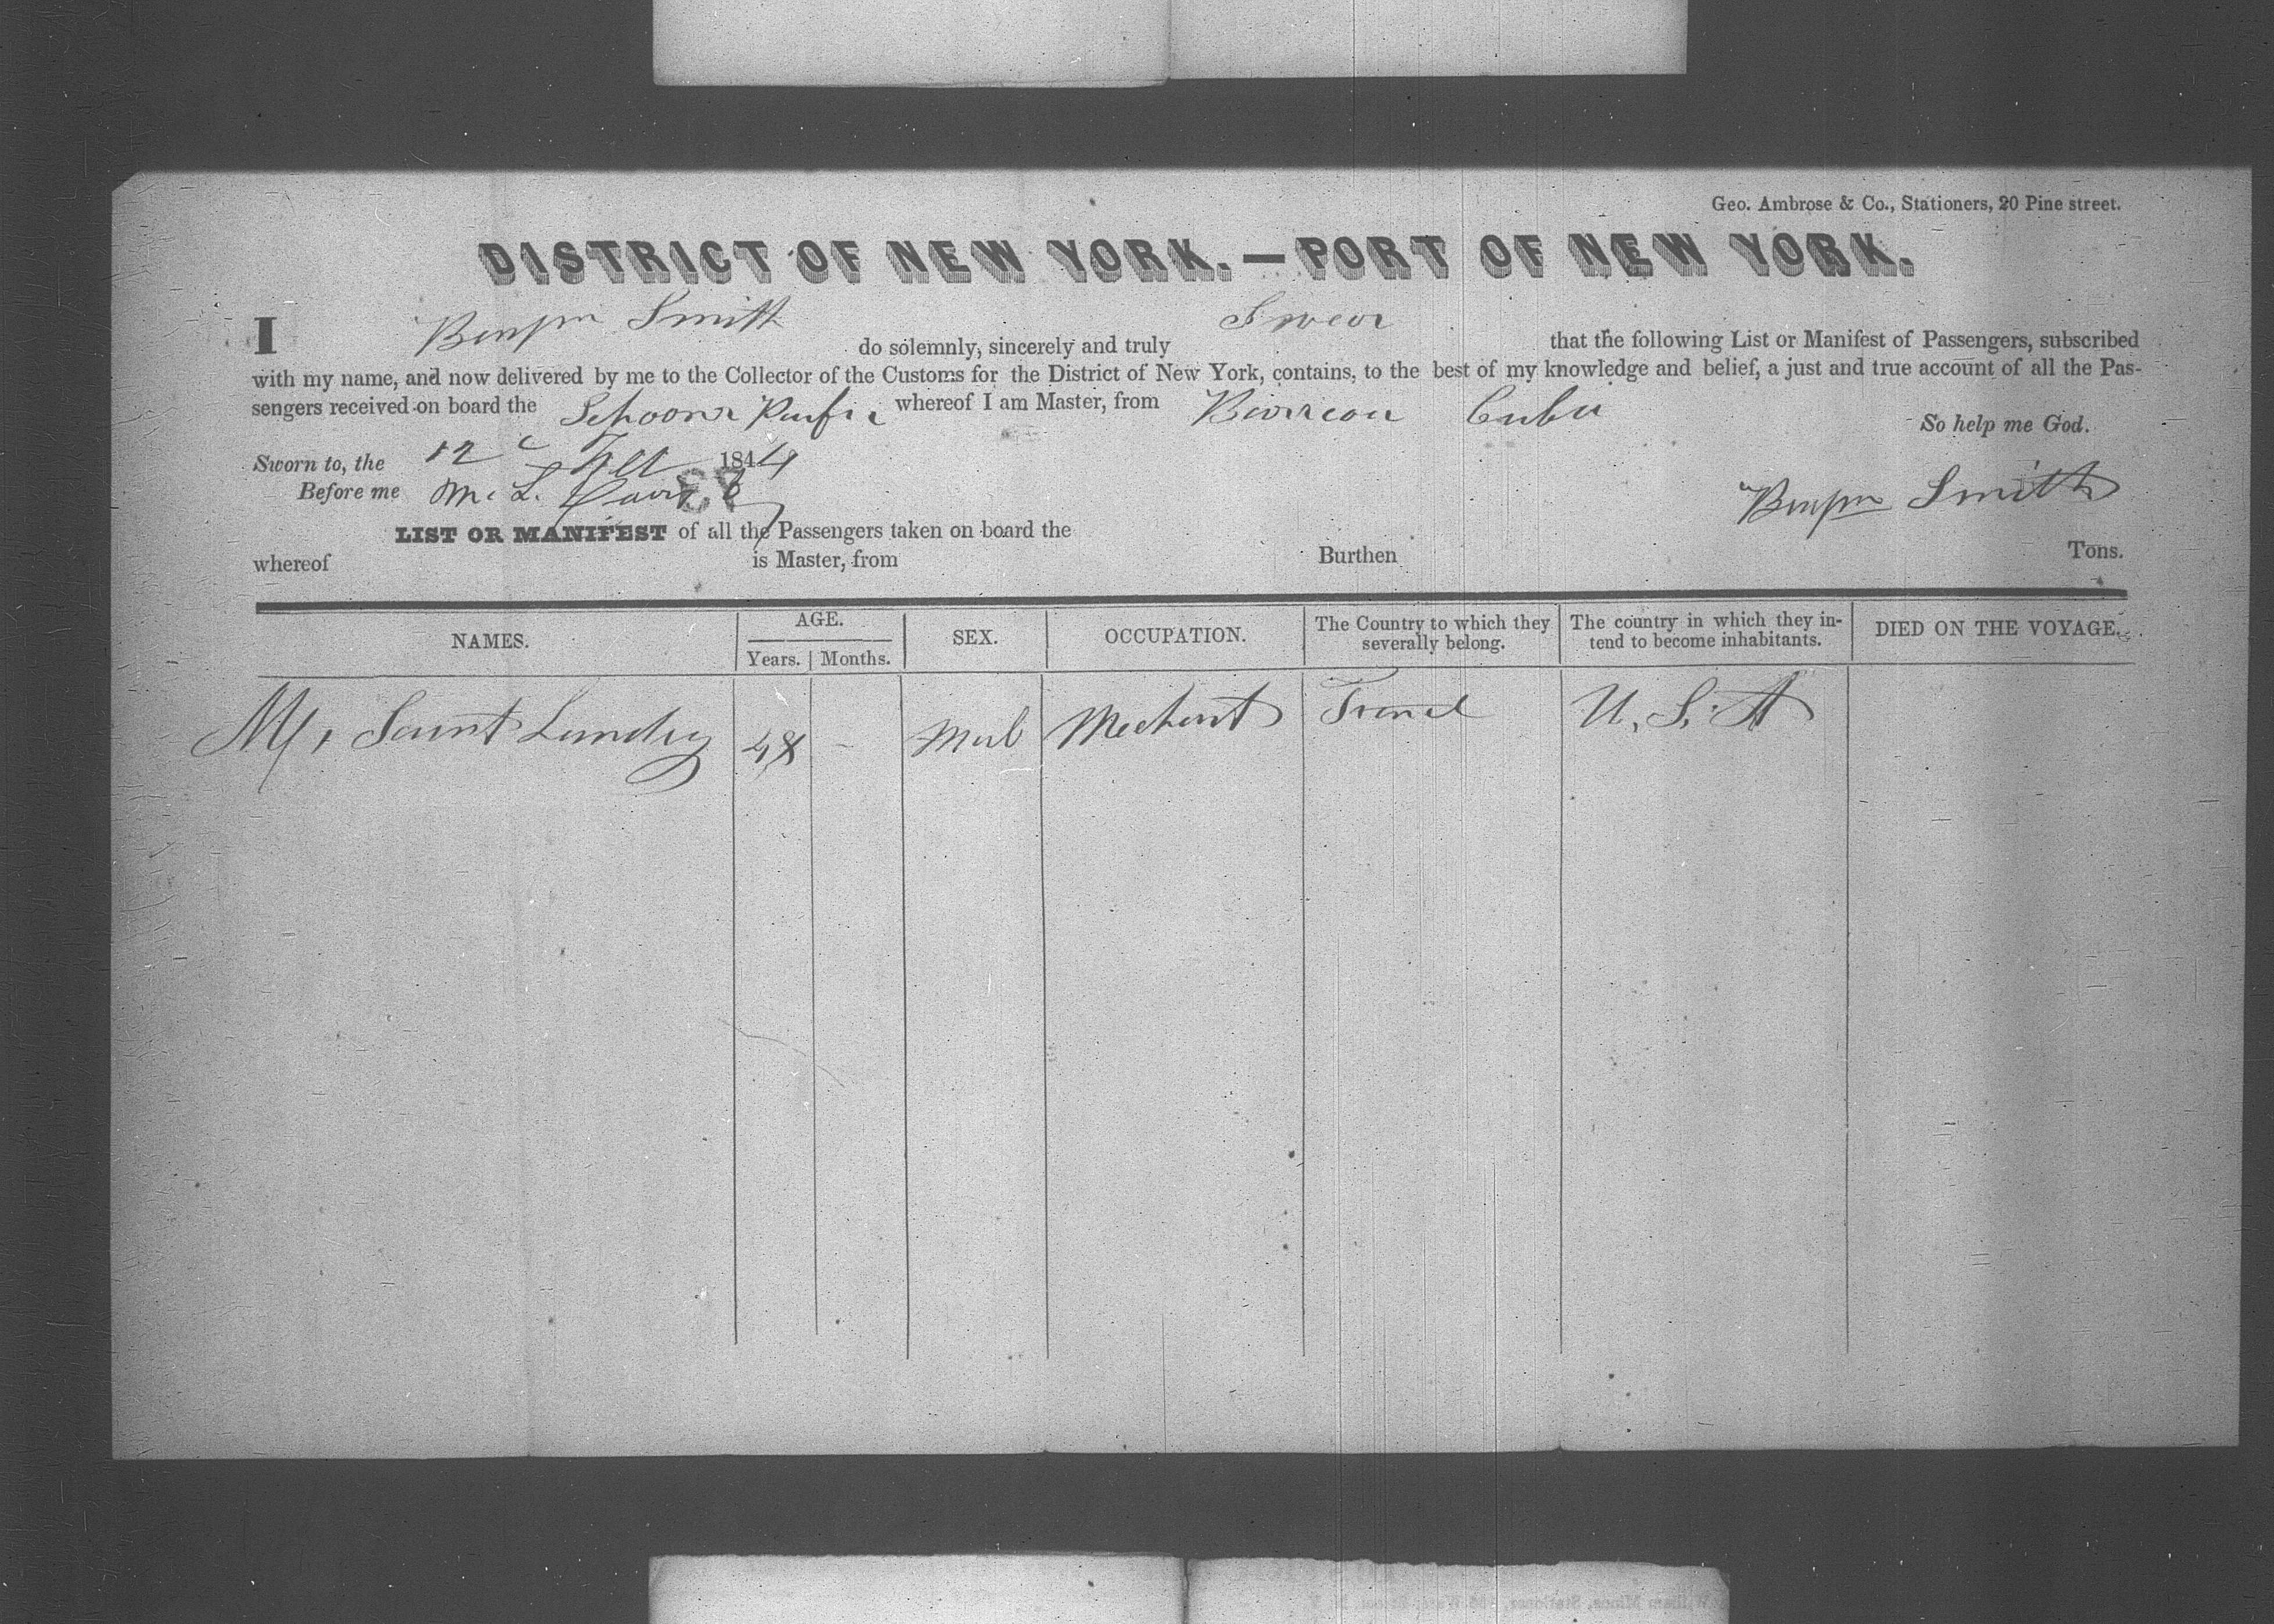 Geo. Ambrose & Co., Stationers, 20 Pine street.
DISTRICT OF NEW YORK.—PORT OF NEW YORK.
I Benjm Smith do solemnly, sincerely and truly Swear that the following List or Manifest of Passengers, subscribed
with my name, and now delivered by me to the Collector of the Customs for the District of New York, contains, to the best of my knowledge and belief, a just and true account of all the Pas-
sengers received on board the Schooner whereof I am Master, from Cuba
So help me God.
Sworn to, the 12 1844
Before me M. L. Davis
Benjm Smith
LIST OR MANIFEST of all the Passengers taken on board the
whereof is Master, from Burthen Tons.
NAMES. AGE. Years. Months. SEX. OCCUPATION. The Country to which they severally belong. The country in which they in-tend to become inhabitants. DIED ON THE VOYAGE.
Mr Saint Landry 48 - Mal Mechant U. S. A